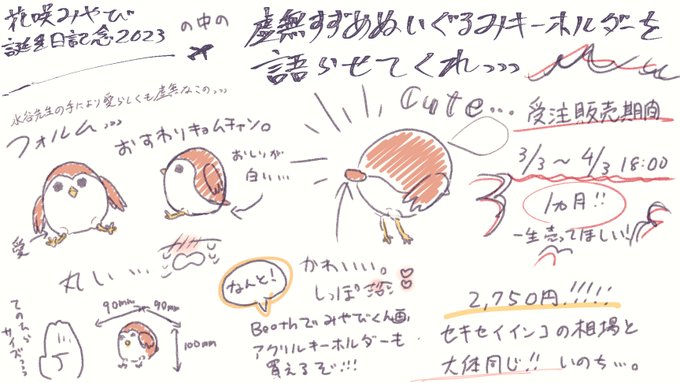 花咲みやび
誕生日記念2023
の中の
虚無すずめぬいぐるみキーホルダーを
語らせてくれ...
水谷先生の手により愛らしくも虚無なこの...
フォルム...
おすわりキョムチャン。
おしりが
白い...
Cute...
受注販売期間
3/3〜4/3 18:00
1ヵ月!!
一生売ってほしい!
愛
丸い...
てのひら
サイズ...
90mm
90mm
100mm
なんと!
かわいい。
しっぽ
Boothでみやびくん画
アクリルキーホルダーも
買えるぞ!!!
2,750円!!!!!
セキセイインコの相場と
大体同じ!! いのち...。